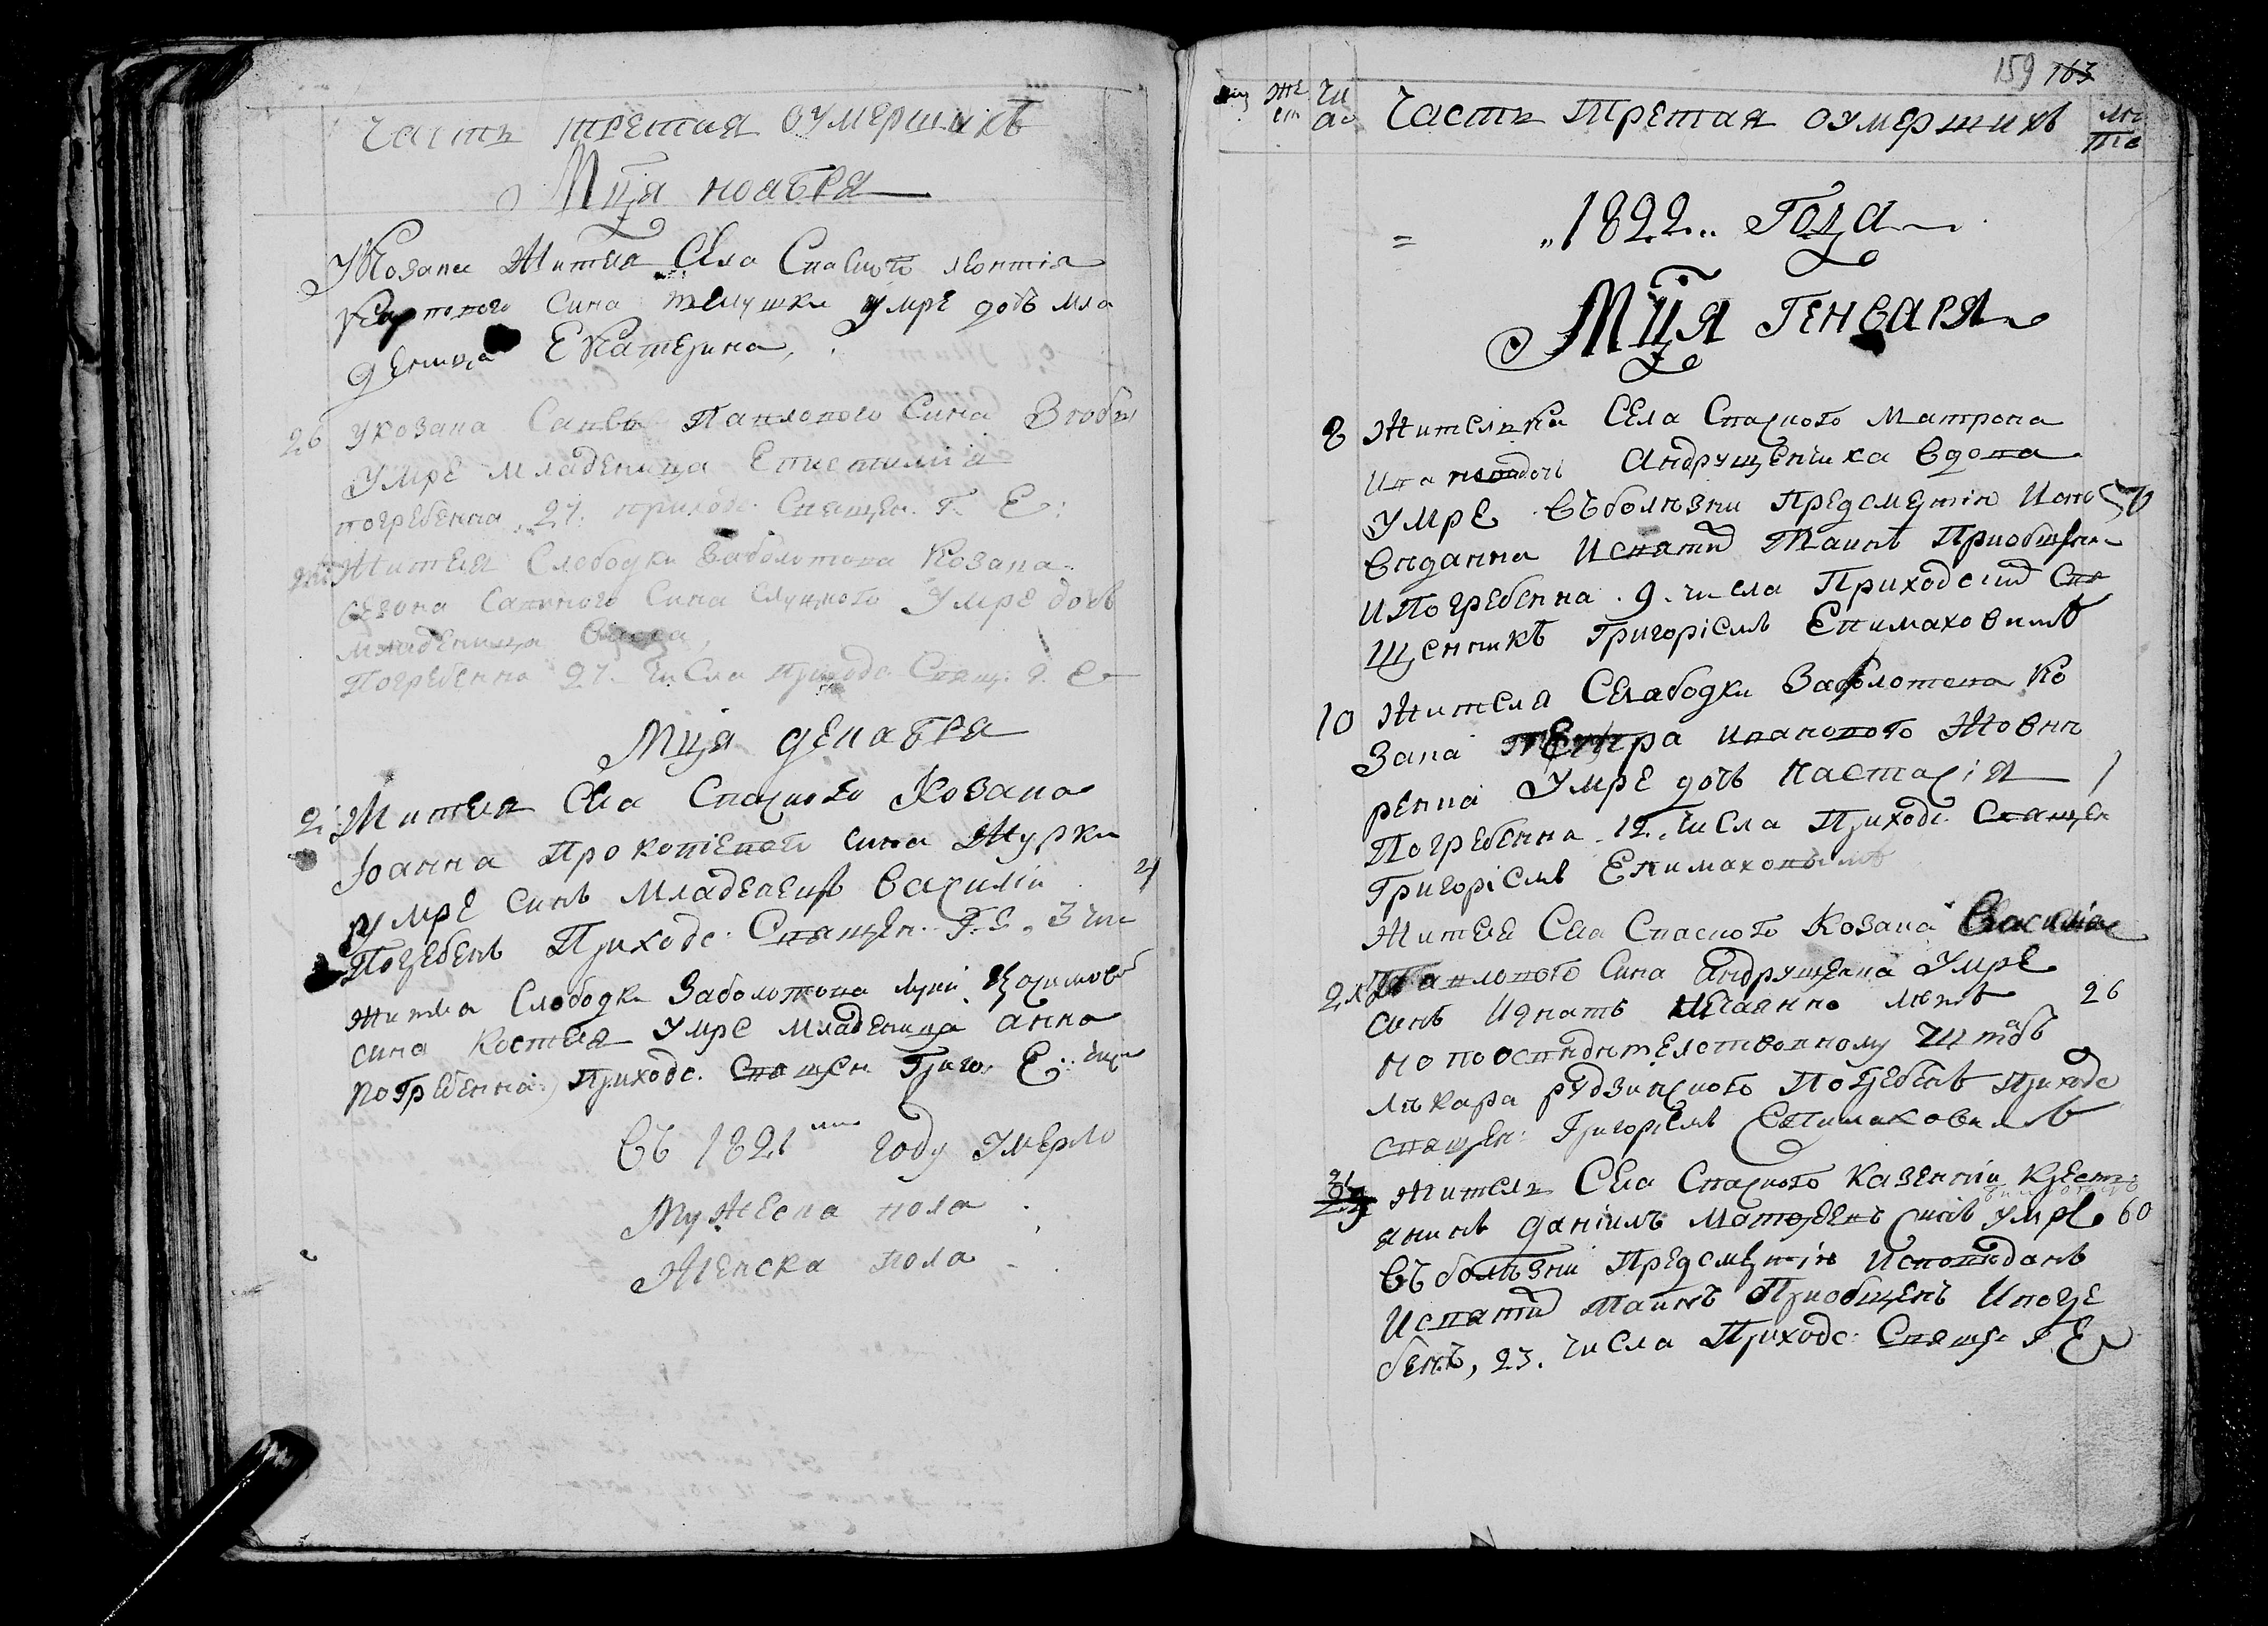 Часть третая оумершихъ
Мця ноабря
Козака Жителя Села Спаского леонтія
Карпового Сина умре дочъ мла
деница Екатерина
26 у козака Савы Павлового Сина
умре младеница
погребенна 27. приходс. Священ. Г. Е.
Жителя Слободки Заболотова Козака
Сина умре дочъ
младеница
Погребенна 27. числа Приходс. Свящ. Г. Е
Мця декабря
2 Жителя Села Спаского Козака
Іоанна Прокопіевого сина Журки
умре синъ младенецъ Василій
Погребенъ Приходс. Священ. Г. Е. 3 чи
жителя Слободки Заболотова
сина Костеля умре младеница анна
погребенна Приходс. Священ Григо. Е.
Въ 1821 году умерло
Мужеска пола
Женска пола
159 163
муж Же ст Чи ло Часть Третая оумершихъ лѣ та
1822 Года
Мця Генваря
8 Жителька Села Спаского Матрона
Андрущенкиха вдова
умре въболѣзни Предсмертію Испо 50
виданна Исвятих Таинъ Приобщен
ИПогребенна 9. числа Приходским Свя
щенникъ Григоріемъ Епимаховимъ
10 Жителя Слабодки Заболотова Ко
зака Ивановото Жовни
ренка умре дочъ настасія 1
Погребенна 12. числа Приходс. Священ
Григоріемъ Епимаховымъ
Жителя Села Спаского Козака Василія
21 Павлового Сина Андрущенка умре
синъ Игнатъ Нечаянно лѣтъ 26
но посвидителствованному Штабъ
лѣкара Погребенъ Приходс
священ. Григоріемъ Епимаховимъ
21 житель Села Спаского казенній крест
янинъ даніилъ Матвѣевъ синъ умре 60
Въболѣзни Предсмертію Исповиданъ
Исвятих Таинъ Приобщенъ Ипогре
бенъ, 23. числа Приходс. Свящ. Г. Е